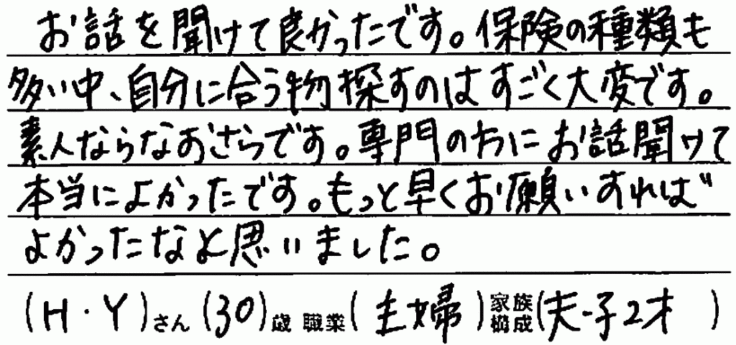 お話を聞けて良かったです。保険の種類も
多い中、自分に合う物探すのはすごく大変です。
素人ならなおさらです。専門の方にお話聞けて
本当によかったです。もっと早くお願いすれば
よかったなと思いました。
(H・Y)さん(30)歳 職業(主婦)家族構成(夫・子2才)